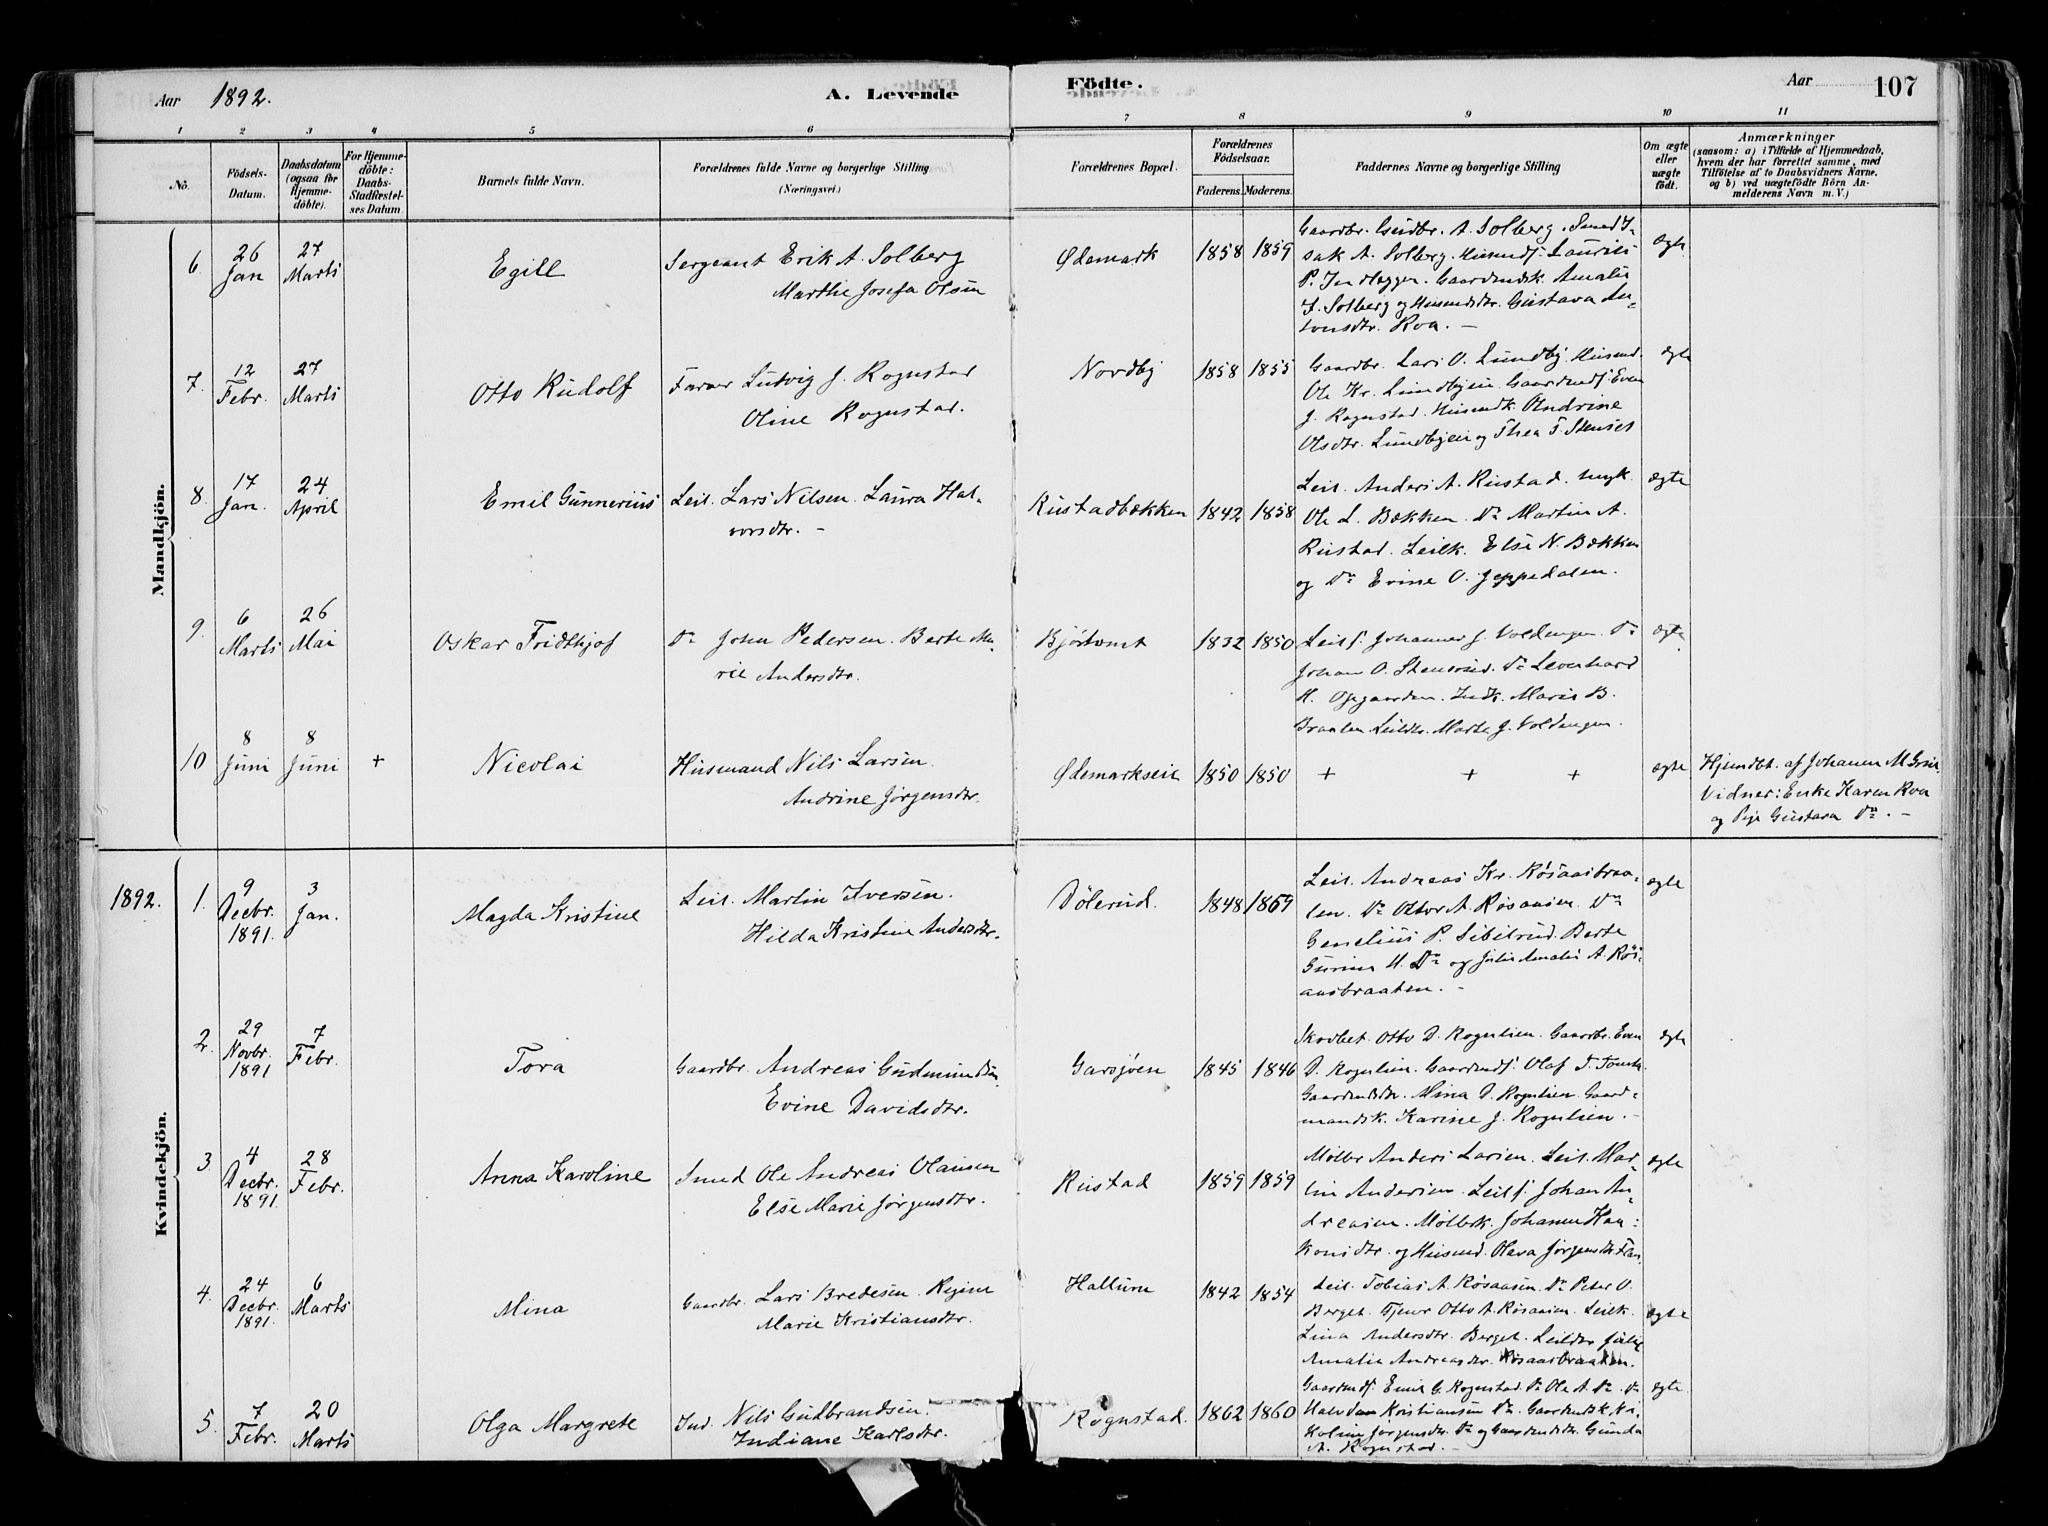 Aar 1892. A. Levende Födte. Aar 107
1 2 3 4 5 6 7 8 9 10 11
No. Födsels-Datum. Daabsdatum (ogsaa for Hjemmedöbte). For Hjemmedöbte: Daabs-Stadfæstelses Datum. Barnets fulde Navn. Forældrenes fulde Navne og borgerlige Stilling (Næringsvei.) Forældrenes Bopæl. Forældrenes Födselsaar. Faderens. Moderens. Faddernes Navne og borgerlige Stilling Om ægte eller uægte födt. Anmærkninger
(saasom: a) i Tilfælde af Hjemmedaab, hvem der har forrettet samme, med Tilföielse af to Daabsvidners Navne, og b) ved uægtefödte Börn Anmelderens Navn m.V.)
Mandkjön.
6. 26 Jan 27 Marts Egill Sergeant Erik A. Solberg
Marthe Josefa Olsen
Ødemark 1858 1859
Gaardbr. Gudbr. A. Solberg. Smed I-
sak A. Solberg. Husmdsf. Laurits
P. Gaardmdsk. Amalie
I. Solberg og Husmdsdtr. Gustava An-
tonsdtr. Roa. –
ægte
7. 12 Febr. 27 Marts Otto Rudolf Farver Ludvig J. Rognstad
Oline Rognstad.
Nordby 1858 1855
Gaardbr. Lars O. Lundby. Husmd.
Ole Kr. Lundbyeie. Gaardmdsf. Even
J. Rognstad. Husmdsk. Andrine
Olsdtr. Lundbyeie og Thea T.
ægte
8. 17 Jan. 24 April Emil Gunnerius Leil. Lars Nilsen. Laura Hal-
vorsdtr. –
Rustadbækken 1842 1858
Leil. Anders A. Rustad. Ungk.
Ole L. Bækken. Do Martin A.
Rustad. Leilk. Else N. Bækken
og Do Evine O. Jeppedalen.
ægte
9. 6 Marts 26 Mai Oskar Fridthjof Do John Pedersen. Berte Ma-
rie Andersdtr.
1832 1850
Leilf. Johannes J. Voldengen. Do
Johan O. Stensrud. Do Leonhard
H. Opgaarden. Indk. Maris B.
Braaten. Leildtr. Marte J. Voldengen.
ægte
10 8 Juni 8 Juni + Nicolai Husmand Nils Larsen.
Andrine Jørgensdtr.
Ødemarkseie 1850 1850 + + + ægte
Hjemdbt. af Johanne M.
Vidner: Enke Karen Roa
og Pige Gustava Do. –
Kvindekjön.
1892. 1. 9 Decbr. 1891. 3 Jan. Magda Kristine Leil. Martin Iversen.
Hilda Kristine Andersdtr.
Dølerud. 1848 1869
Leil. Andreas Kr. Røsaasbraa-
ten. Do Ottor A. Røsaasen. Do
Genelius P. Sibilrud. Berte
Gurine H. Do og Julie Amalie A. Røs-
aasbraaten. –
ægte
2. 29 Novbr. 1891 7 Febr. Tora Gaardbr. Andreas Gudmundsen
Evine Davidsdtr.
Garsjøen 1845 1846
Otto D. Rognlien. Gaardbr. Even
D. Rognlien. Gaardmdsf. Olaf T.
Gaardmdsdtr. Mina D. Rognlien. Gaard-
mandsk. Karine J. Rognlien. –
ægte
3. 4 Decbr. 1891. 28 Febr. Anna Karoline Smed Ole Andreas Olausen
Else Marie Jørgensdtr.
Rustad 1859 1859
Mølbr. Anders Larsen. Leil. Mar-
tin Andersen. Leilf. Johan An-
dreasen. Møllersk. Johanne Haa-
konsdtr. og Husmd. Olava Jørgensdtr.
ægte
4. 24 Decbr. 1891. 6 Marts Mina Gaardbr. Lars Bredesen. Regine
Marie Kristiansdtr.
Hallum 1842 1854
Leil. Tobias A. Røsaasen. Do Peter O.
Berget. Tjener Otto A. Røsaasen. Leilk.
Lina Andersdtr. Berget. Leildtr. Julie
Amalie Andreasdtr. Røsaasbraaten.
ægte
5. 7 Febr. 20 Marts Olga Margrete Ind. Nils Gudbrandsen.
Indiane Karlsdtr.
Rognstad. 1862 1860
Gaardmdsf. Emil G. Rognstad. Do Ole A. Do. Do
Halvdan Kristiansen Do. Gaardmdsk.
Jørgensdtr. Do og Gaardmdsdtr. Gunda
A. Rognstad. –
ægte